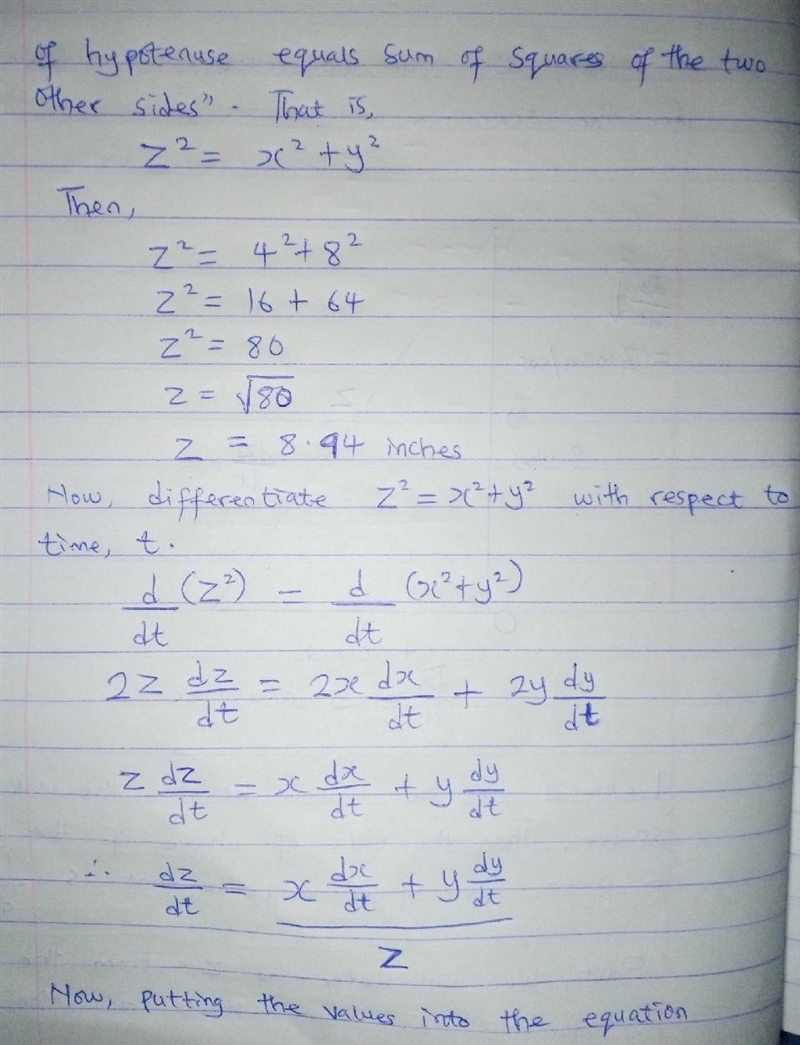 of hypotenuse equals sum of squares of the two
other sides". That is,
z² = x² + y²
Then,
z² = 4² + 8²
z² = 16 + 64
z² = 80
z = √80
z = 8.94 inches
Now, differentiate z² = x² + y² with respect to
time, t.
d/dt (z²) = d/dt (x² + y²)
2z dz/dt = 2x dx/dt + 2y dy/dt
z dz/dt = x dx/dt + y dy/dt
∴ dz/dt = (x dx/dt + y dy/dt) / z
Now, putting the values into the equation